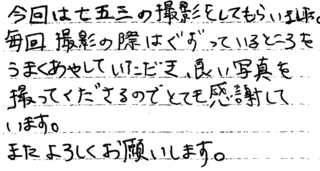 今回は七五三の撮影をしてもらいました。
毎回撮影の際はぐずっているところを
うまくあやしていただき、良い写真を
撮ってくださるのでとても感謝して
います。
またよろしくお願いします。